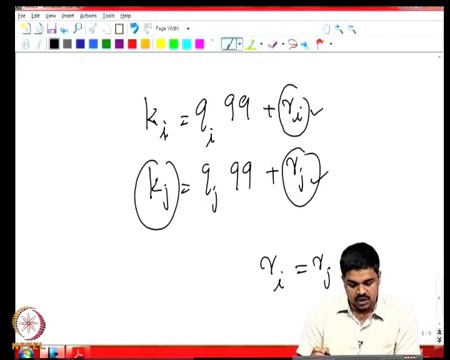 File Edit View Insert Actions Tools Help
Page Width
k_i = q_i 99 + r_i ✓
k_j = q_j 99 + r_j ✓
r_i = r_j
NPTEL